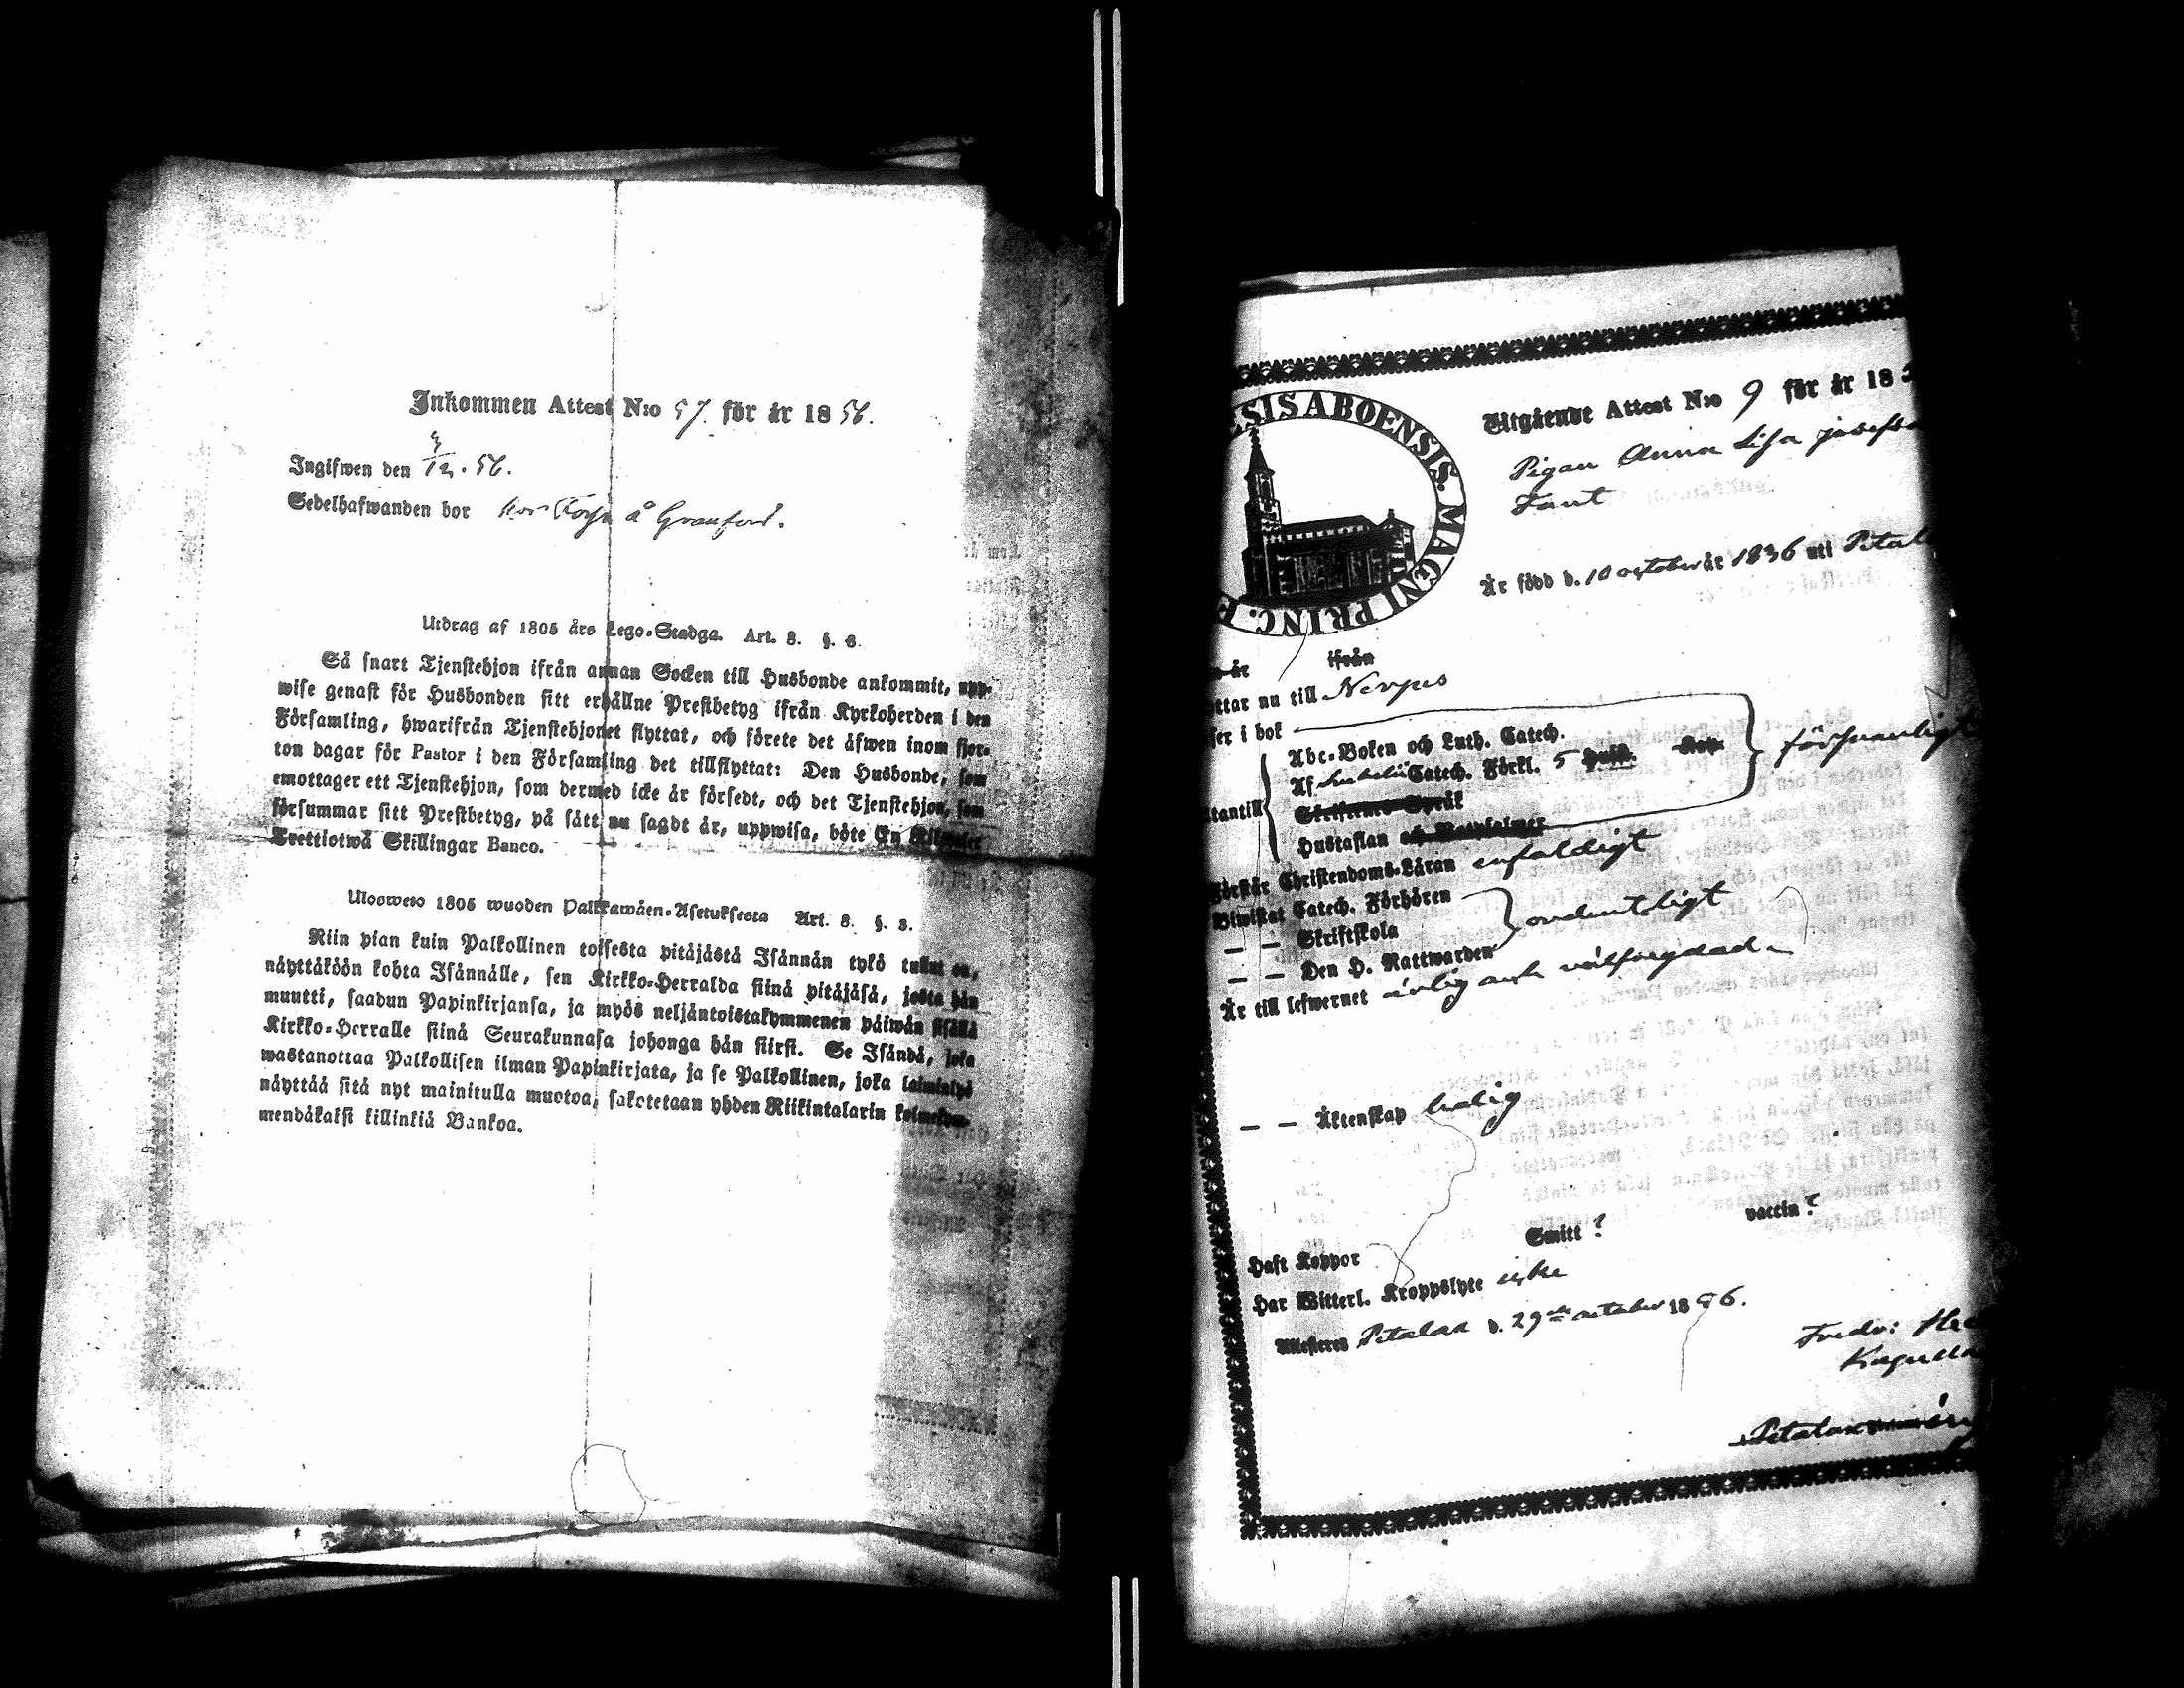 Inkommen Attest N:o 57. för år 1856.
Ingifwen den 9/12. 56.
Sedelhafwanden bor hos Torp å Granfors.
Utdrag af 1805 års Lego-Stadga. Art. 8. §. 6.
Så snart Tjenstehjon ifrån annan Socken till Husbonde ankommit, upp-
wise genast för Husbonden sitt erhållne Prestbetyg ifrån Kyrkoherden i den
Församling, hwarifrån Tjenstehjonet flyttat, och förete det äfwen inom fjor-
ton dagar för Pastor i den Församling det tillflyttat: Den Husbonde, som
emottager ett Tjenstehjon, som dermed icke är försedt, och det Tjenstehjon, som
försummar sitt Prestbetyg, på sätt nu sagdt är, uppwisa, böte En Riksdaler
Trettiotwå Skillingar Banco.
Ulosweto 1805 wuoden Palkkawäen-Asetuksesta Art. 8. §. 3.
Niin pian kuin Palkollinen toisesta pitäjästä Isännän tykö tullut on,
näyttäköön kohta Isännälle, sen Kirkko-Herralda siinä pitäjäsä, josta hän
muutti, saadun Papinkirjansa, ja myös neljäntoistakymmenen päiwän sisällä
Kirkko-Herralle siinä Seurakunnasa johonga hän siirsi. Se Isändä, joka
wastanottaa Palkollisen ilman Papinkirjata, ja se Palkollinen, joka laiminlyö
näyttää sitä nyt mainitulla muotoa, sakotetaan yhden Riikintalarin kolmekym-
mendäkaksi killinkiä Bankoa.
SIS ABOENSIS. MAGNI PRINC. F
Utgående Attest N:o 9 för år 18
Pigan Anna Lisa Josefs
Fant
Är född d. 10 october år 1836 uti Petal
år ifrån
ttar nu till Nerpes
ser i bok
Abc-Boken och Luth. Catech.
Af Catech. Förkl. 5 Hufst. försvarligt
tantill Skriftenes Språk
Hustaflan och Bottpsalmer
Förstår Christendoms-Läran enfaldigt
Biwistat Catech. Förhören
— — Skriftskola ordentligt
— — Den H. Nattwarden
Är till lefwernet ärlig och välfrejdad
— — Äktenskap ledig
Haft Koppor Smitt? vaccin?
Har Witterl. Kroppslyte icke
Attesteres Petalax d. 29de october 1856.
Fredr: He
Petalax